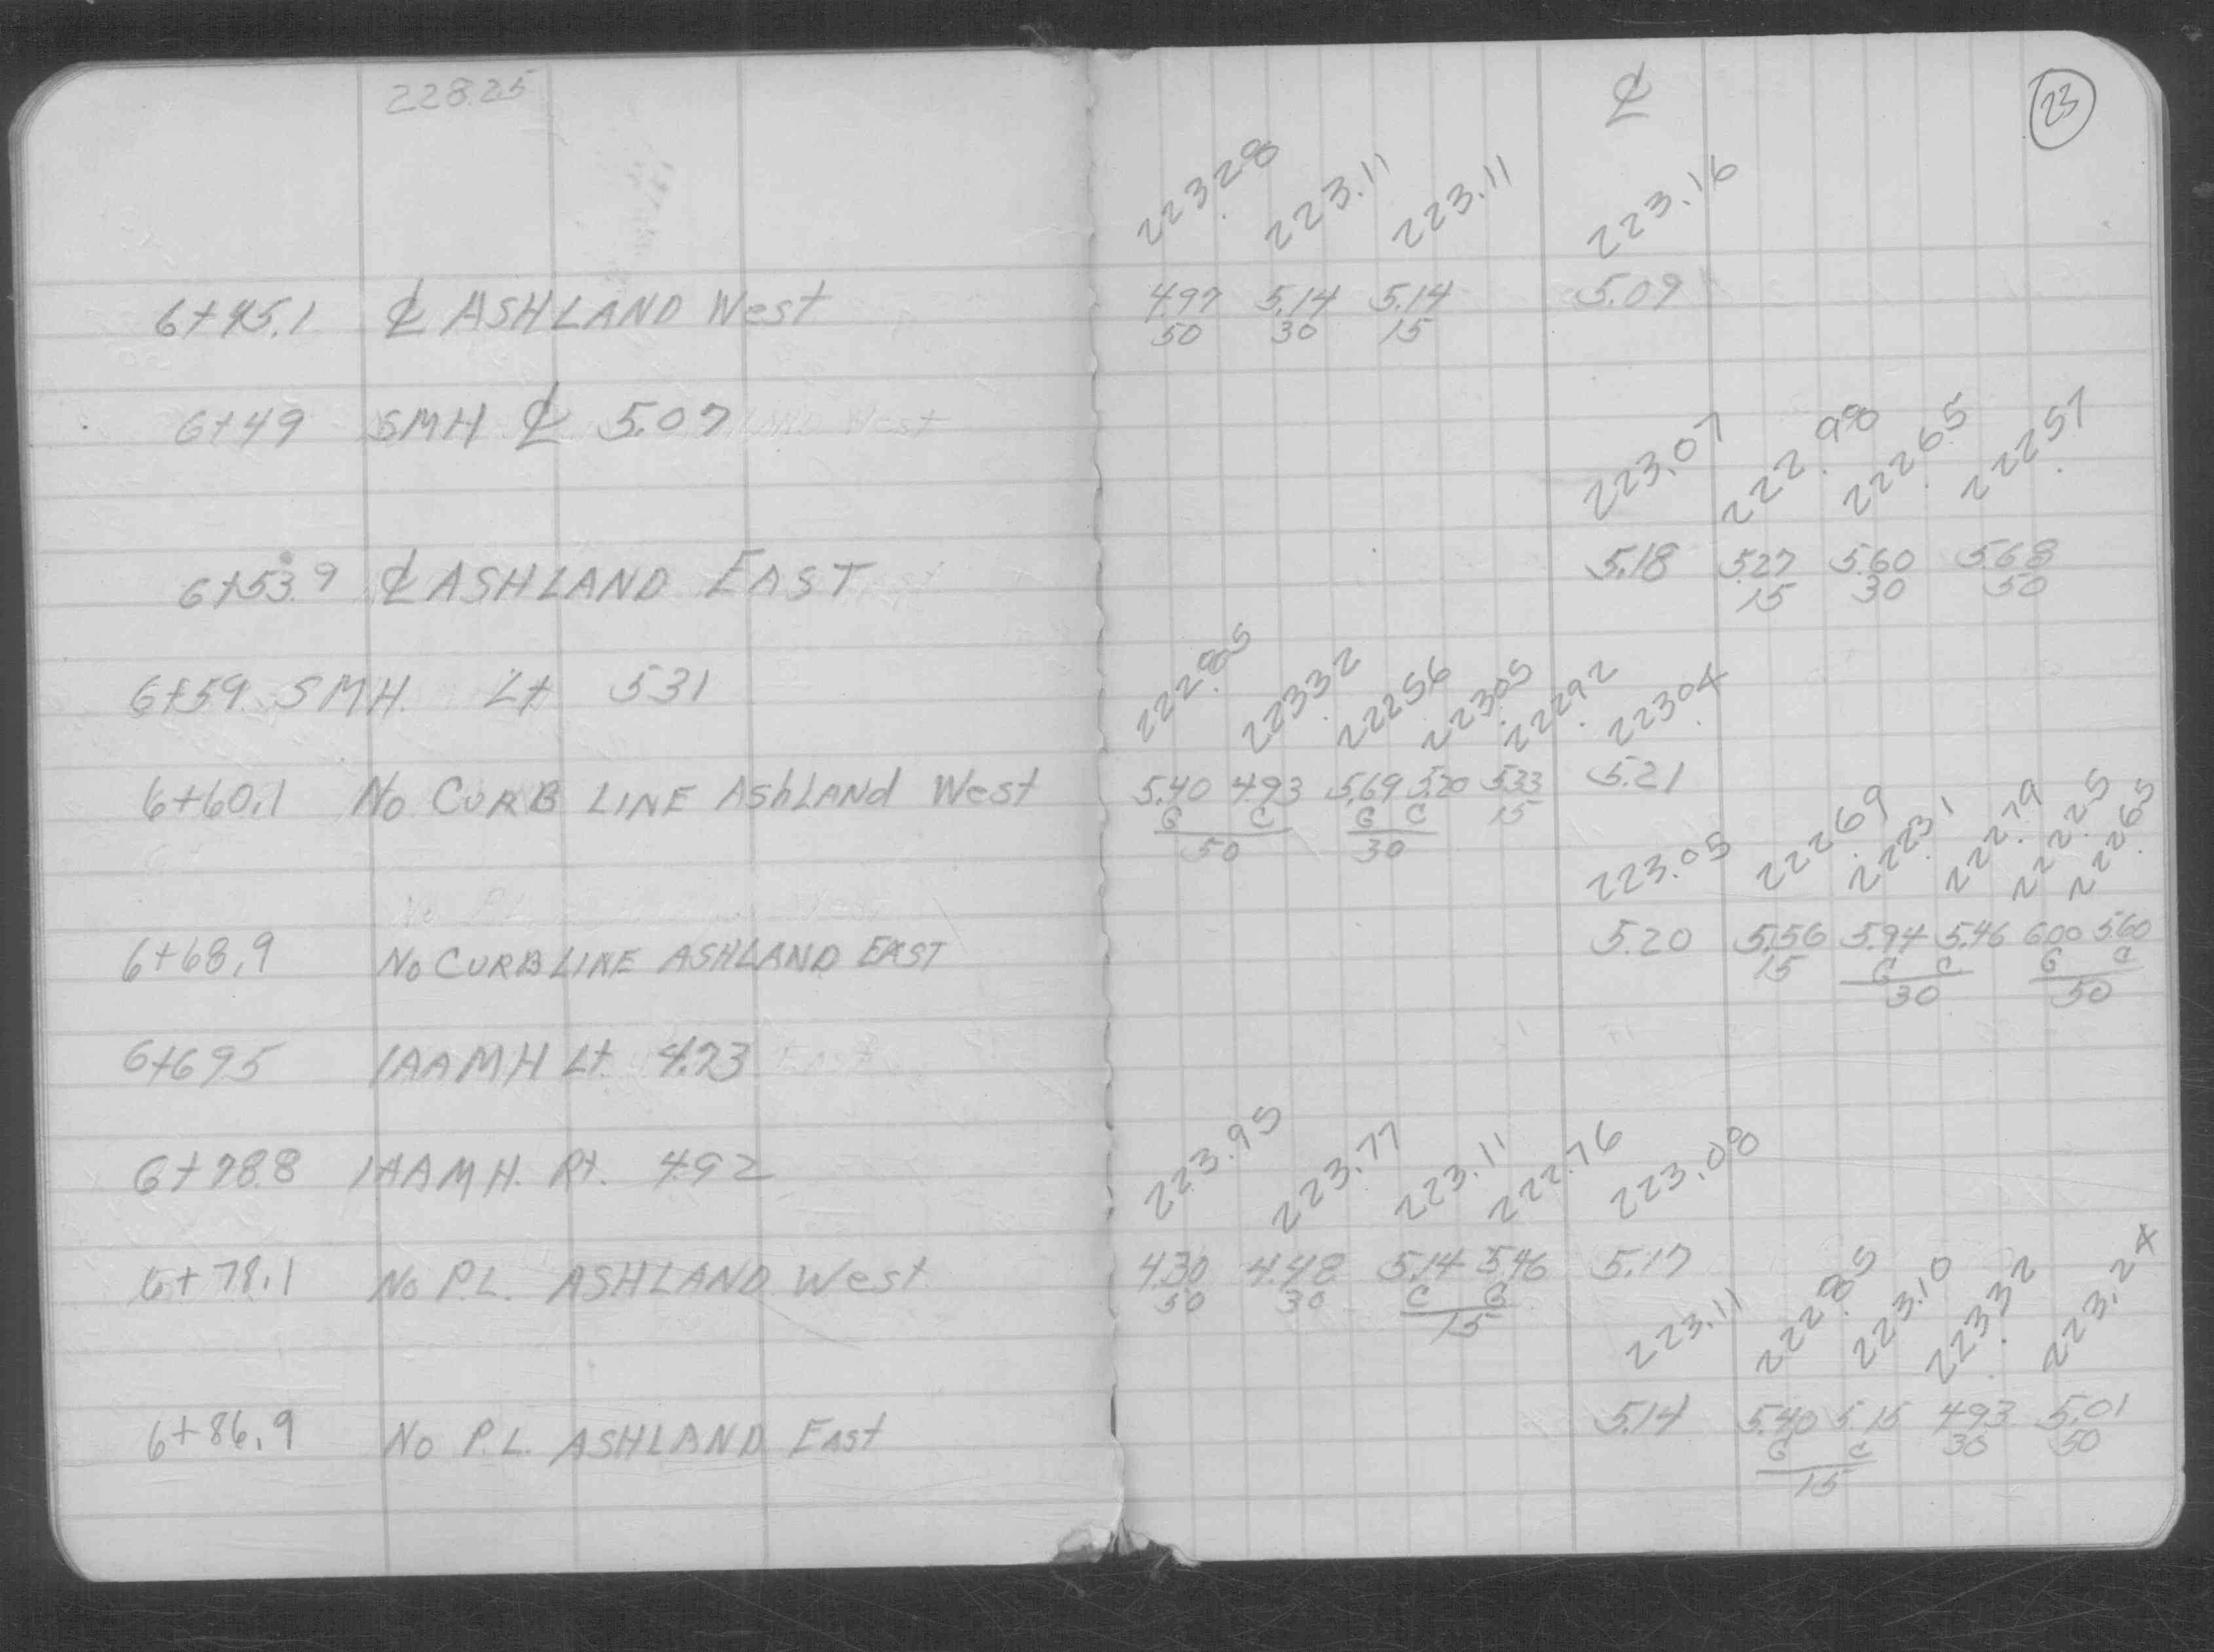 228.25
℄ 23
223.28 223.11 223.11 223.16
6+45.1 ℄ ASHLAND West 4.97 5.14 5.14 5.09
50 30 15
6+49 SMH ℄ 5.07
223.07 222.98 222.65 222.57
6+53.9 ℄ ASHLAND EAST 5.18 5.27 5.60 5.68
15 30 50
6+59 SMH. Lt 531
222.85 223.32 222.56 223.05 222.92 223.04
6+60.1 No CURB LINE AShLANd West 5.40 4.93 5.69 5.20 5.33 5.21
G C G C 15
50 30
223.05 222.69 222.31 222.79 222.25 222.65
6+68.9 No CURB LINE ASHLAND EAST 5.20 5.56 5.94 5.46 6.00 5.60
15 G C G C
30 50
6+695 LAAMH Lt. 4.73
6+78.8 LAAMH. Rt. 4.92
223.95 223.77 223.11 222.76 223.08
6+78.1 No P.L. ASHLAND West 4.30 4.48 5.14 5.46 5.17
50 30 C G
15
223.11 222.85 223.10 223.32 223.24
6+86.9 No P.L. ASHLAND East 5.14 5.40 5.15 4.93 5.01
G C 30 50
15